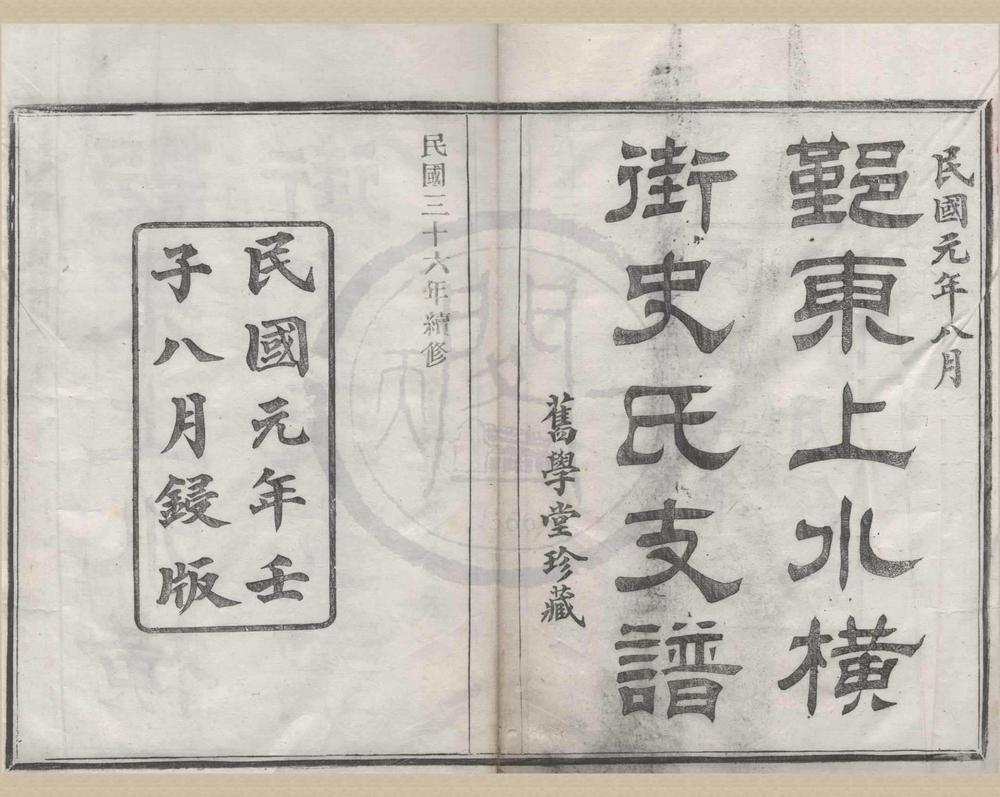 民國元年八月
鄞東上水橫
街史氏支譜
舊學堂珍藏
民國三十六年續修
民國元年壬
子八月鋟版